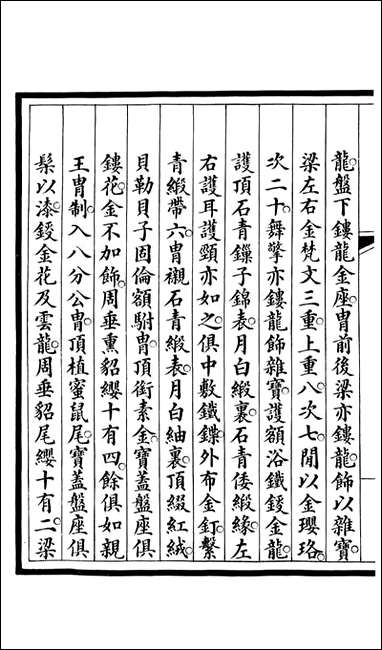 龍盤下鏤龍金座冑前後梁亦鏤龍飾以雜寶
梁左右金梵文三重上重八次七閒以金瓔珞
次二十舞擎亦鏤龍飾雜寶護額浴鐵鋄金龍
護頂石青鏁子錦表月白緞裏石青倭緞緣左
右護耳護頸亦如之俱中敷鐵鍱外布金釘繫
青緞帶六冑襯石青緞表月白紬裏頂綴紅絨
貝勒貝子固倫額駙冑頂銜素金寶蓋盤座俱
鏤花金不加飾周垂熏貂纓十有四餘俱如親
王冑制入八分公冑頂植蜜鼠尾寶蓋盤座俱
髹以漆鋄金花及雲龍周垂貂尾纓十有二梁